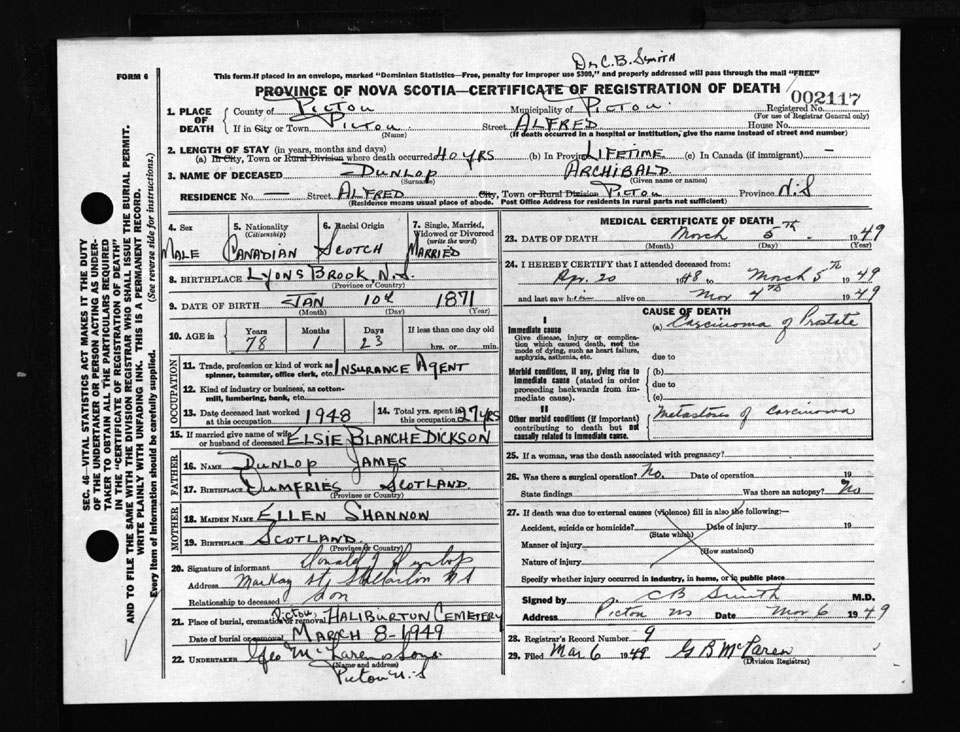 Dr. C. B. Smith
FORM 6
This form if placed in an envelope, marked "Dominion Statistics—Free, penalty for improper use $300," and properly addressed will pass through the mail "FREE"
PROVINCE OF NOVA SCOTIA—CERTIFICATE OF REGISTRATION OF DEATH
002117
1. PLACE OF DEATH
County of PICTOU Municipality of PICTOU Registered No.
(For use of Registrar General only)
If in City or Town PICTOU Street ALFRED House No.
(Name) (If death occurred in a hospital or institution, give the name instead of street and number)
2. LENGTH OF STAY (in years, months and days)
(a) In City, Town or Rural Division where death occurred 40 YRS (b) In Province LIFETIME (c) In Canada (if immigrant) —
3. NAME OF DECEASED DUNLOP ARCHIBALD
(Surname) (Given name or names)
RESIDENCE No. — Street ALFRED City, Town or Rural Division PICTOU Province N.S
(Residence means usual place of abode. Post Office Address for residents in rural parts not sufficient)
4. Sex
MALE
5. Nationality
(Citizenship)
CANADIAN
6. Racial Origin
SCOTCH
7. Single, Married, Widowed or Divorced
(write the word)
MARRIED
8. BIRTHPLACE LYONS BROOK, N.S.
(Province or Country)
9. DATE OF BIRTH JAN 10th 1871
(Month) (Day) (Year)
10. AGE in Years Months Days If less than one day old
78 1 23 hrs. or min.
OCCUPATION
11. Trade, profession or kind of work as spinner, teamster, office clerk, etc. INSURANCE AGENT
12. Kind of industry or business, as cotton-mill, lumbering, bank, etc.
13. Date deceased last worked at this occupation 1948
14. Total yrs. spent in this occupation 27 YRS
15. If married give name of wife or husband of deceased ELSIE BLANCHE DICKSON
FATHER
16. NAME DUNLOP JAMES
17. BIRTHPLACE DUMFRIES SCOTLAND
(Province or Country)
MOTHER
18. MAIDEN NAME ELLEN SHANNON
19. BIRTHPLACE SCOTLAND
(Province or Country)
20. Signature of informant Donald J Dunlop
Address MacKay St, Stellarton NS
Relationship to deceased Son
21. Place of burial, cremation or removal Pictou, HALIBURTON CEMETERY
Date of burial or removal MARCH 8-1949
22. UNDERTAKER Geo McLaren & Sons
(Name and address)
Pictou N.S
MEDICAL CERTIFICATE OF DEATH
23. DATE OF DEATH March 5th 1949
(Month) (Day) (Year)
24. I HEREBY CERTIFY that I attended deceased from:
Apr. 20 1948 to March 5th 1949
and last saw him alive on Mar 4th 1949
CAUSE OF DEATH
I
Immediate cause
Give disease, injury or complication which caused death, not the mode of dying, such as heart failure, asphyxia, asthenia, etc.
(a) Carcinoma of Prostate
due to
Morbid conditions, if any, giving rise to immediate cause (stated in order proceeding backwards from immediate cause).
(b)
due to
(c)
II
Other morbid conditions (if important) contributing to death but not causally related to immediate cause.
Metastoses of Carcinoma
25. If a woman, was the death associated with pregnancy?
26. Was there a surgical operation? No. Date of operation 19
State findings Was there an autopsy? No
27. If death was due to external causes (violence) fill in also the following:—
Accident, suicide or homicide? Date of injury 19
(State which)
Manner of injury
(How sustained)
Nature of injury
Specify whether injury occurred in industry, in home, or in public place
Signed by C B Smith M.D.
Address Pictou NS Date Mar 6 1949
28. Registrar's Record Number 9
29. Filed Mar 6 1949 G B McLaren
(Division Registrar)
SEC. 46—VITAL STATISTICS ACT MAKES IT THE DUTY
OF THE UNDERTAKER OR PERSON ACTING AS UNDER-
TAKER TO OBTAIN ALL THE PARTICULARS REQUIRED
IN THE "CERTIFICATE OF REGISTRATION OF DEATH"
AND TO FILE THE SAME WITH THE DIVISION REGISTRAR WHO SHALL ISSUE THE BURIAL PERMIT.
WRITE PLAINLY WITH UNFADING INK. THIS IS A PERMANENT RECORD.
Every item of information should be carefully supplied. (See reverse side for instructions.)